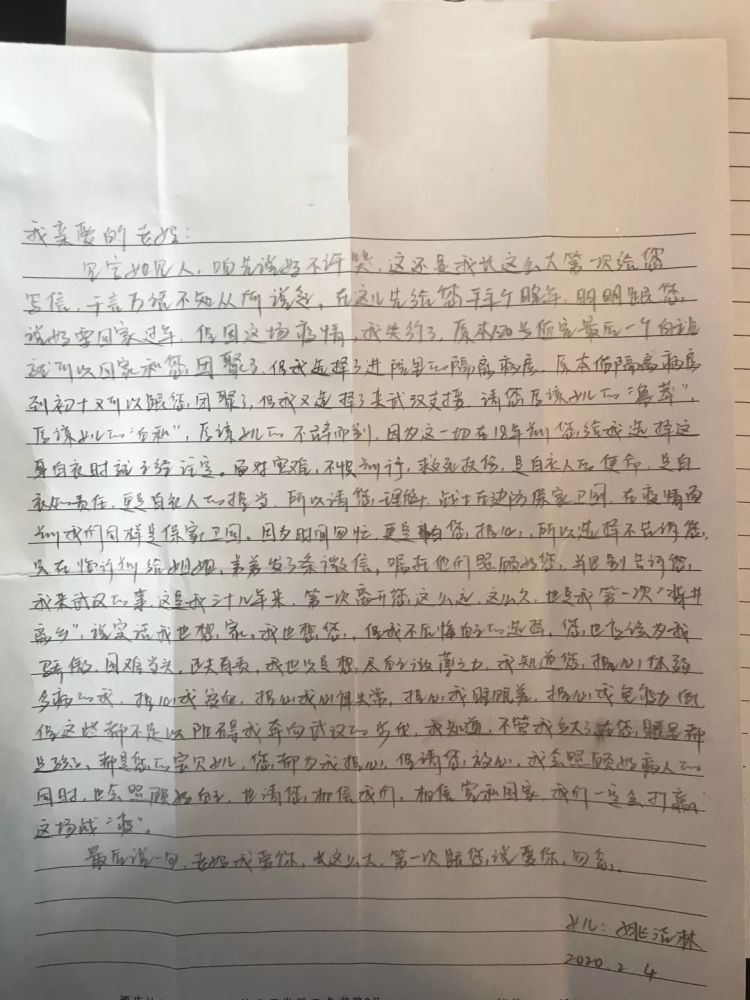 我亲爱的老妈：
见字如见人，咱先说好不许哭，这还是我长这么大第一次给您
写信，千言万语不知从何说起，在这儿先给您拜个晚年，明明跟您
说好要回家过年，但因这场疫情，我失约了，原本值完最后一个白班
就可以回家和您团聚了，但我选择了进院里的隔离病房，原本值隔离病房
到初十又可以跟您团聚了，但我又选择了来武汉支援，请您原谅女儿的“鲁莽”，
原谅女儿的“自私”，原谅女儿的不辞而别，因为这一切在18年前您给我选择这
身白衣时就已经注定。面对灾难，不惧前行，救死扶伤，是白衣人的使命，是白
衣人的责任，更是白衣人的担当，所以请您理解，战士在边防保家卫国，在疫情面
前我们同样是保家卫国。因为时间匆忙，更是怕您担心，所以选择不告诉您，
只在临行前给姐姐、弟弟发了条微信，嘱托他们照顾好您，并且别告诉您，
我来武汉的事，这是我三十几年来，第一次离开您这么远，这么久，也是我第一次“背井
离乡”，说实话我也想家，我也想您，但我不后悔自己的选择，您也应该为我
骄傲，困难当头，匹夫有责，我也只是想尽自己微薄之力，我知道您担心体弱
多病的我，担心我贫血，担心我心律失常，担心我睡眠差，担心我免疫力低
但这些都不足以阻碍我奔向武汉的步伐，我知道，不管我多大了在您眼里都
是孩子，都是您的宝贝女儿，您都为我担心，但请您放心，我会照顾好病人的
同时，也会照顾好自己，也请您相信我们，相信党和国家，我们一定会打赢
这场战“疫”。
最后说一句，老妈我爱你，长这么大，第一次跟您说爱你，勿念。
女儿：姚洁林
2020.2.4